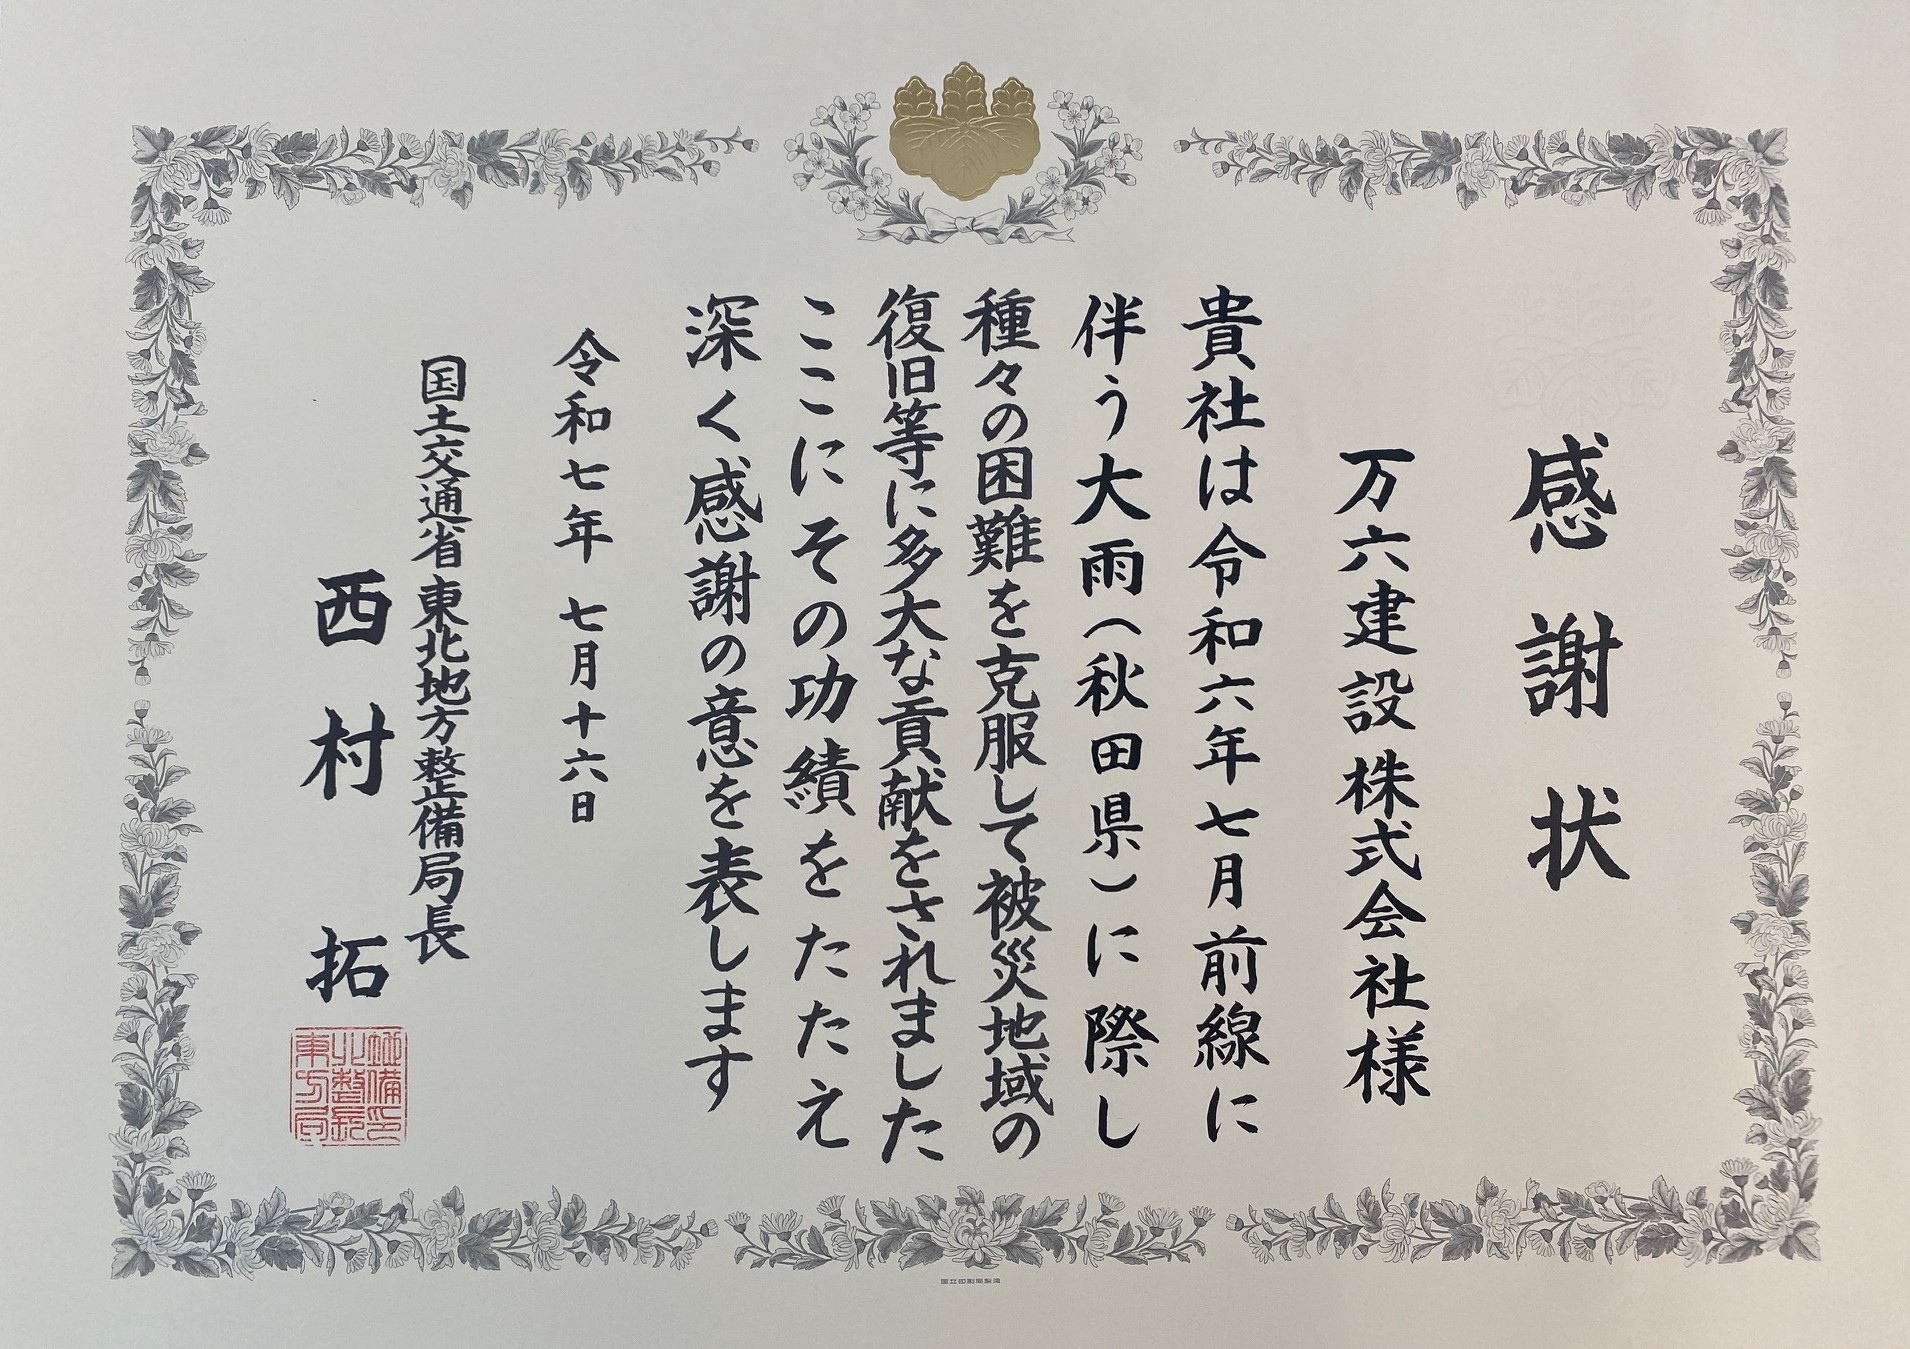 感謝状
万六建設株式会社様
貴社は令和六年七月前線に
伴う大雨(秋田県)に際し
種々の困難を克服して被災地域の
復旧等に多大な貢献をされました
ここにその功績をたたえ
深く感謝の意を表します
令和七年 七月十六日
国土交通省東北地方整備局長
西村 拓
国立印刷局製造